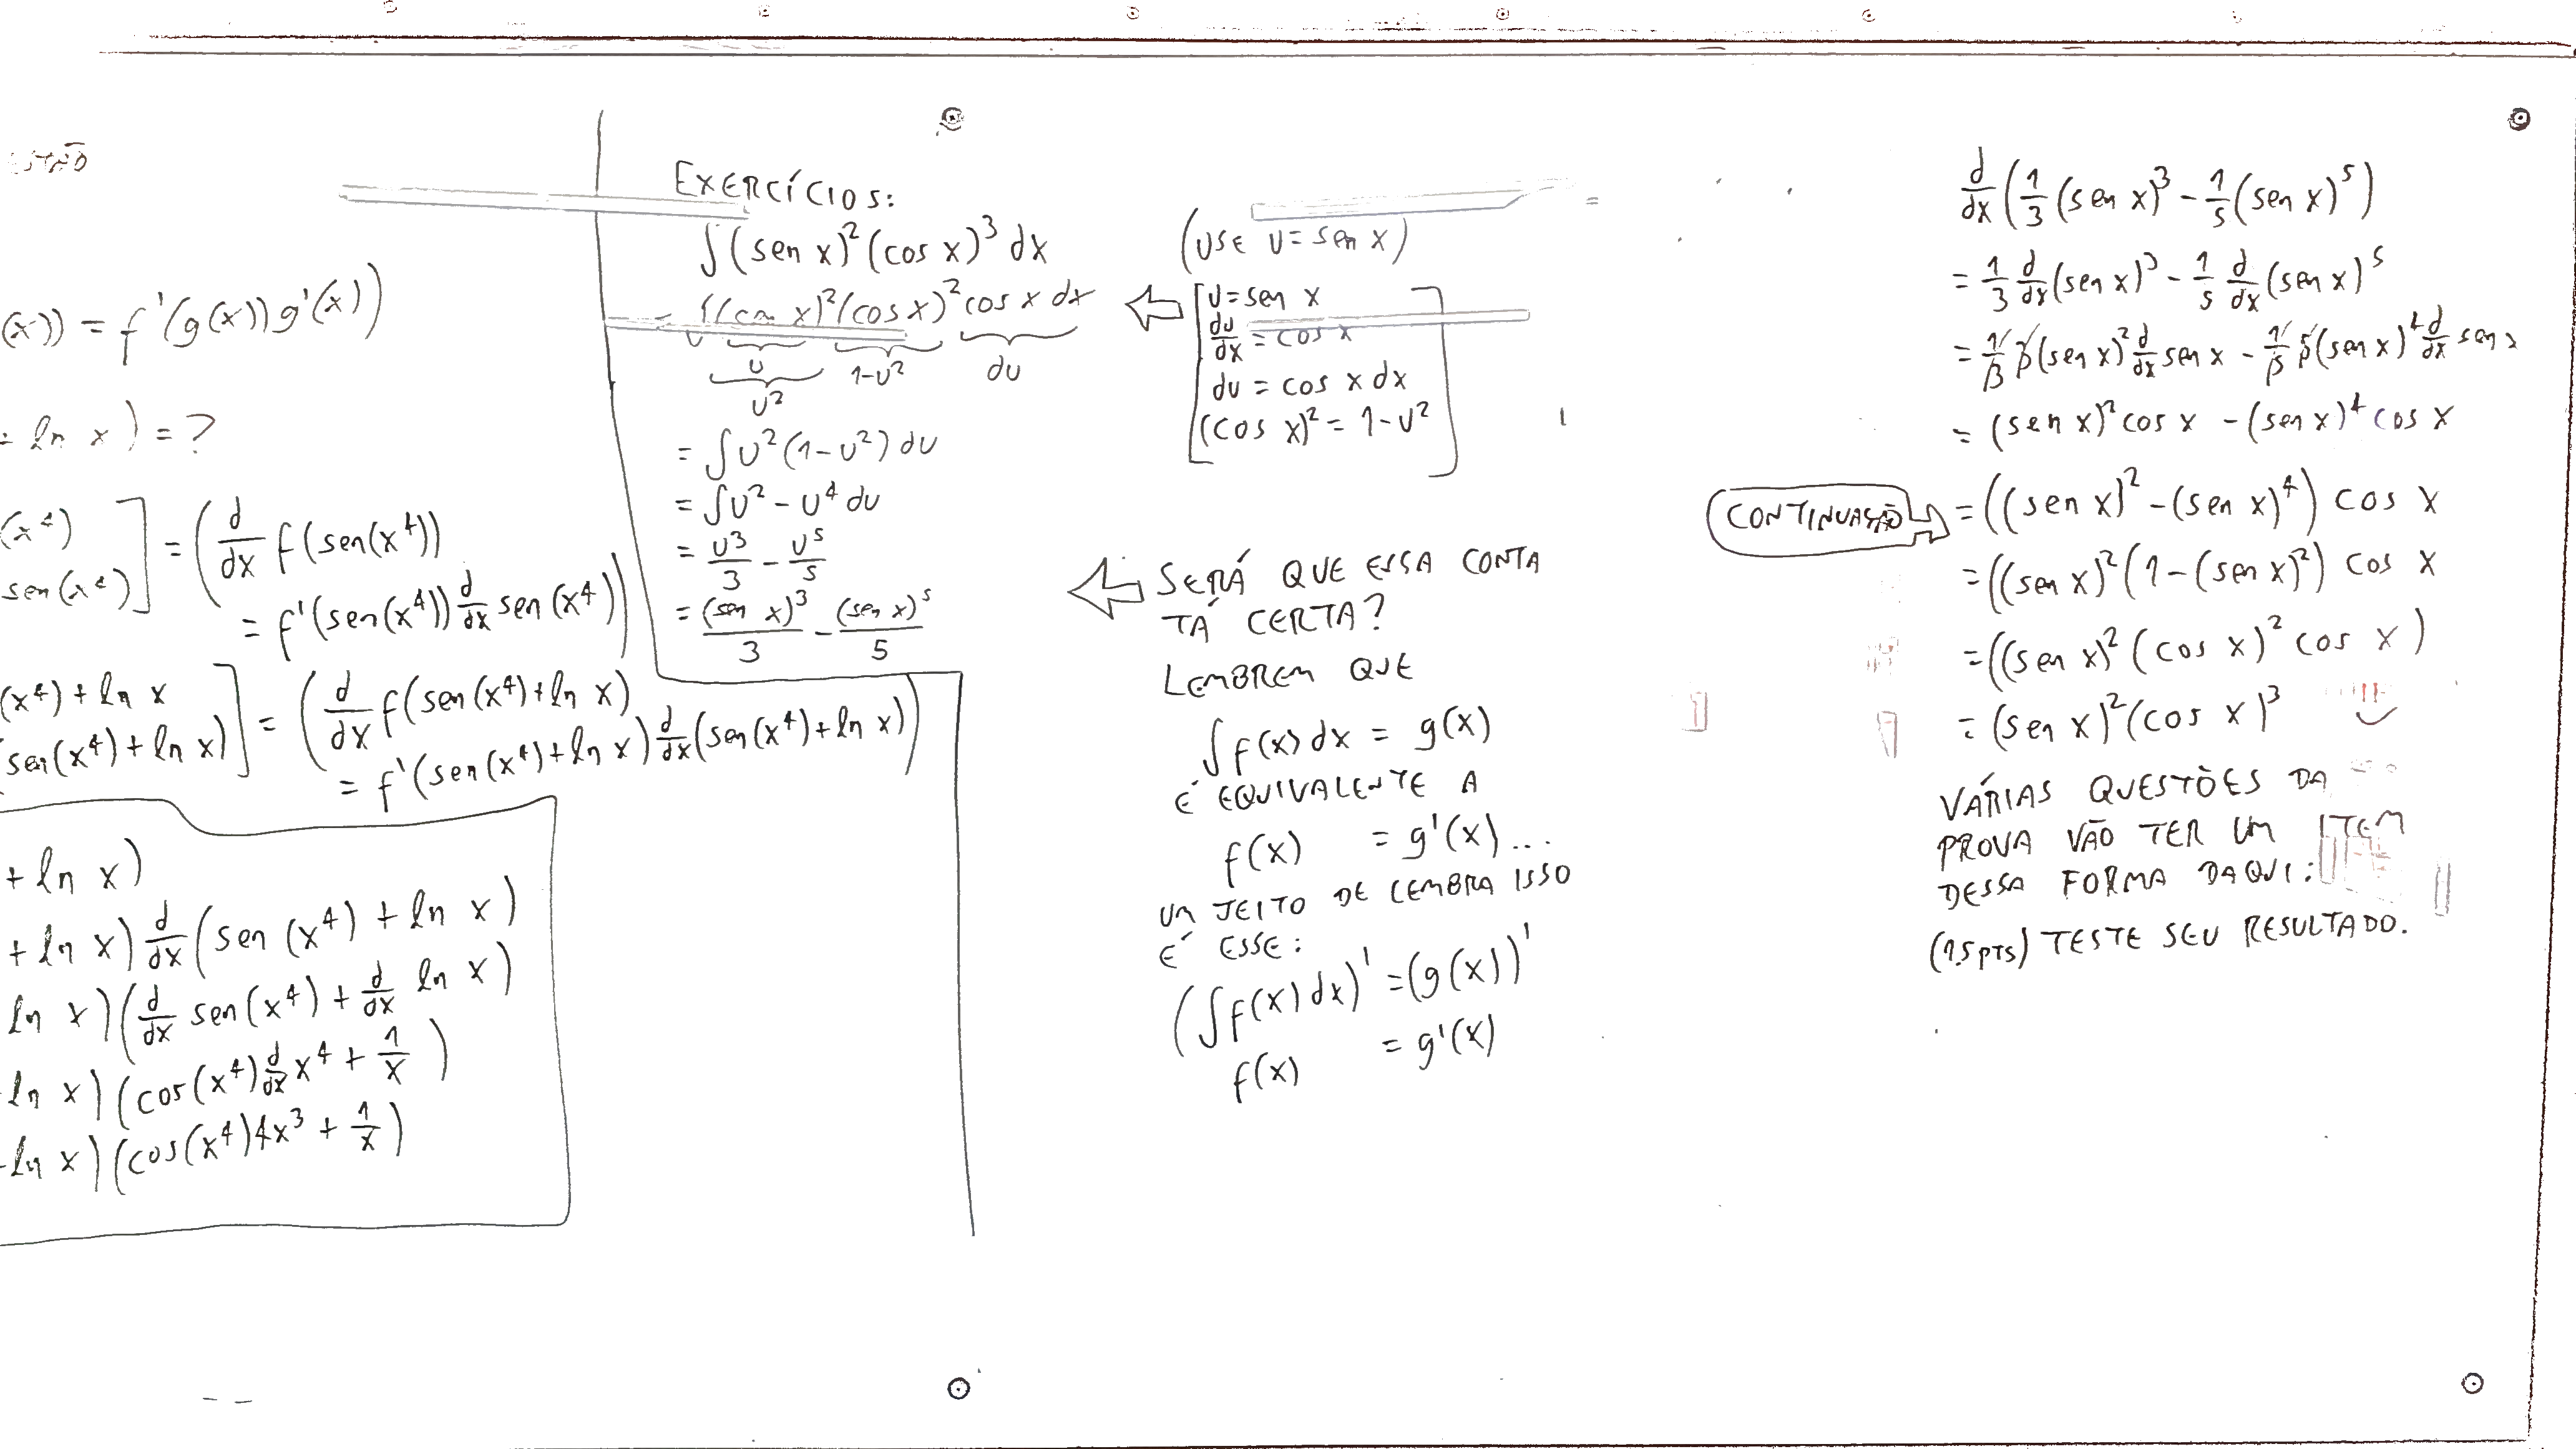 (x)) = f'(g(x))g'(x))
= ln x) = ?
(x⁴)
sen(x⁴)] = (d/dx f(sen(x⁴))
= f'(sen(x⁴)) d/dx sen(x⁴))
(x⁴) + ln x
sen(x⁴) + ln x)] = (d/dx f(sen(x⁴) + ln x)
= f'(sen(x⁴) + ln x) d/dx (sen(x⁴) + ln x))
+ ln x)
+ ln x) d/dx (sen(x⁴) + ln x)
ln x)(d/dx sen(x⁴) + d/dx ln x)
ln x)(cos(x⁴) d/dx x⁴ + 1/x)
ln x)(cos(x⁴)4x³ + 1/x)
EXERCÍCIOS:
∫(sen x)²(cos x)³ dx
(USE U = sen x)
= ∫(sen x)²(cos x)² cos x dx
U
U²
1-U²
du
[U = sen x
du/dx = cos x
du = cos x dx
(cos x)² = 1 - U²]
= ∫U²(1-U²) du
= ∫U² - U⁴ du
= U³/3 - U⁵/5
= (sen x)³/3 - (sen x)⁵/5
SERÁ QUE ESSA CONTA
TÁ CERTA?
LEMBREM QUE
∫f(x) dx = g(x)
É EQUIVALENTE A
f(x) = g'(x)...
UM JEITO DE LEMBRA ISSO
É ESSE:
(∫f(x) dx)' = (g(x))'
f(x) = g'(x)
d/dx (1/3 (sen x)³ - 1/5 (sen x)⁵)
= 1/3 d/dx (sen x)³ - 1/5 d/dx (sen x)⁵
= 1/3 3(sen x)² d/dx sen x - 1/5 5(sen x)⁴ d/dx sen x
= (sen x)² cos x - (sen x)⁴ cos x
CONTINUAÇÃO
= ((sen x)² - (sen x)⁴) cos x
= ((sen x)²(1 - (sen x)²) cos x
= ((sen x)² (cos x)² cos x)
= (sen x)²(cos x)³
VÁRIAS QUESTÕES DA
PROVA VÃO TER UM ITEM
DESSA FORMA DAQUI:
(1.5 PTS) TESTE SEU RESULTADO.